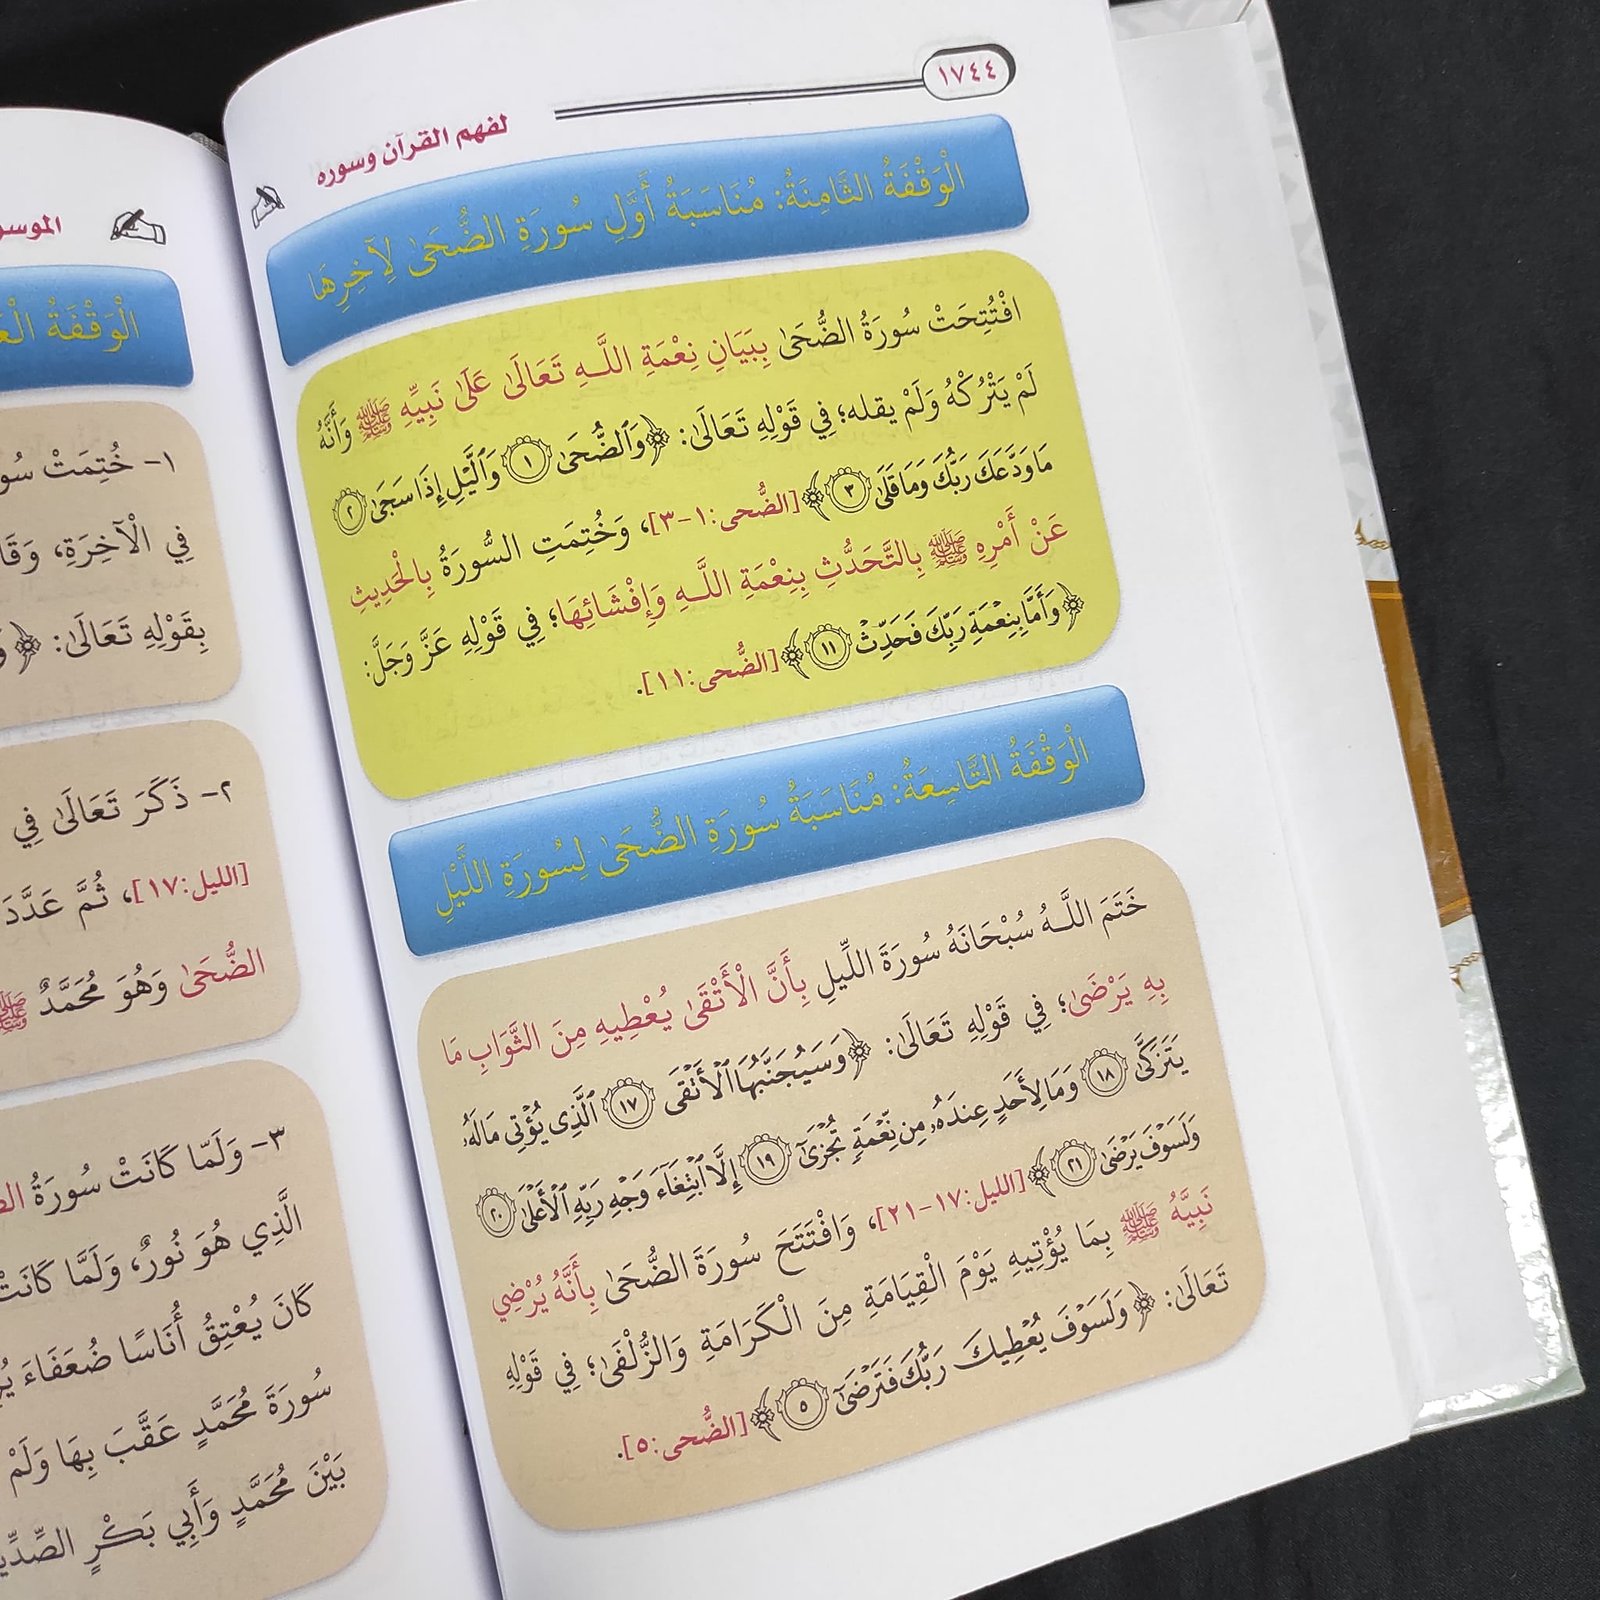 ١٧٤٤
لفهم القرآن وسوره
الْوَقْفَةُ الثَّامِنَةُ: مُنَاسَبَةُ أَوَّلِ سُورَةِ الضُّحَىٰ لِآخِرِهَا
افْتُتِحَتْ سُورَةُ الضُّحَىٰ بِبَيَانِ نِعْمَةِ اللَّهِ تَعَالَىٰ عَلَىٰ نَبِيِّهِ ﷺ وَأَنَّهُ
لَمْ يَتْرُكْهُ وَلَمْ يقله؛ فِي قَوْلِهِ تَعَالَىٰ: ﴿وَٱلضُّحَىٰ ١ وَٱلَّيْلِ إِذَا سَجَىٰ ٢
مَا وَدَّعَكَ رَبُّكَ وَمَا قَلَىٰ ٣﴾ [الضُّحى:١-٣]، وَخُتِمَتِ السُّورَةُ بِالْحَدِيثِ
عَنْ أَمْرِهِ ﷺ بِالتَّحَدُّثِ بِنِعْمَةِ اللَّهِ وَإِفْشَائِهَا؛ فِي قَوْلِهِ عَزَّ وَجَلَّ:
﴿وَأَمَّا بِنِعْمَةِ رَبِّكَ فَحَدِّثْ ١١﴾ [الضُّحى:١١].
الْوَقْفَةُ التَّاسِعَةُ: مُنَاسَبَةُ سُورَةِ الضُّحَىٰ لِسُورَةِ اللَّيْلِ
خَتَمَ اللَّهُ سُبْحَانَهُ سُورَةَ اللَّيلِ بِأَنَّ الْأَتْقَىٰ يُعْطِيهِ مِنَ الثَّوَابِ مَا
بِهِ يَرْضَىٰ؛ فِي قَوْلِهِ تَعَالَىٰ: ﴿وَسَيُجَنَّبُهَا ٱلْأَتْقَى ١٧ ٱلَّذِى يُؤْتِى مَالَهُۥ
يَتَزَكَّىٰ ١٨ وَمَا لِأَحَدٍ عِندَهُۥ مِن نِّعْمَةٍ تُجْزَىٰٓ ١٩ إِلَّا ٱبْتِغَآءَ وَجْهِ رَبِّهِ ٱلْأَعْلَىٰ ٢٠
وَلَسَوْفَ يَرْضَىٰ ٢١﴾ [الليل:١٧-٢١]، وَافْتَتَحَ سُورَةَ الضُّحَىٰ بِأَنَّهُ يُرْضِي
نَبِيَّهُ ﷺ بِمَا يُؤْتِيهِ يَوْمَ الْقِيَامَةِ مِنَ الْكَرَامَةِ وَالزُّلْفَىٰ؛ فِي قَوْلِهِ
تَعَالَىٰ: ﴿وَلَسَوْفَ يُعْطِيكَ رَبُّكَ فَتَرْضَىٰٓ ٥﴾ [الضُّحى:٥].
الْوَقْفَةُ
١- خُتِمَتْ
فِي الْآخِرَةِ،
بِقَوْلِهِ تَعَالَىٰ: ﴿
٢- ذَكَرَ تَعَالَىٰ فِي
[الليل:١٧]، ثُمَّ عَدَّدَ
الضُّحَىٰ وَهُوَ مُحَمَّدٌ ﷺ
٣- وَلَمّا كَانَتْ سُورَةُ
الَّذِي هُوَ نُورٌ، وَلَمَّا كَانَتْ
كَانَ يُعْتِقُ أُنَاسًا ضُعَفَاءَ
سُورَةَ مُحَمَّدٍ عَقَّبَ بِهَا وَلَمْ
بَيْنَ مُحَمَّدٍ وَأَبِي بَكْرٍ